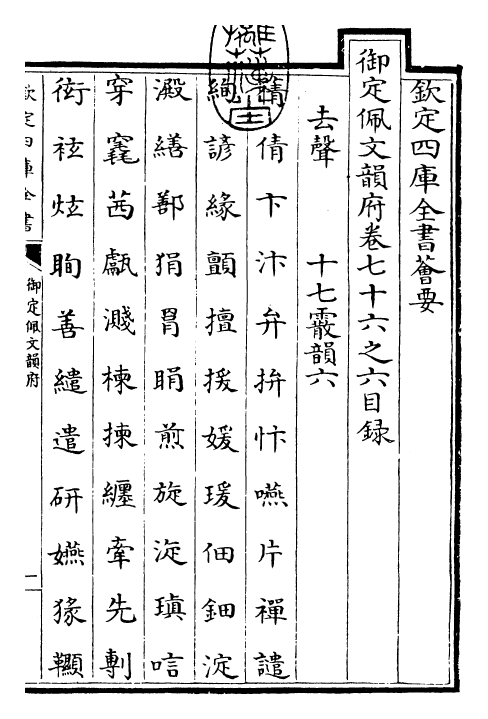 欽定四庫全書薈要
御定佩文韻府卷七十六之六目録
去聲　十七霰韻六
倩卞汴弁拚忭嚥片禪譴
絢諺緣顫擅援媛瑗佃鈿淀
澱繕鄯狷罥睊煎旋瑱唁
穿竁茜甗濺楝揀纏牽先剸
衒袨炫眴善繾遣研嬿猭韅
欽定四庫全書
御定佩文韻府